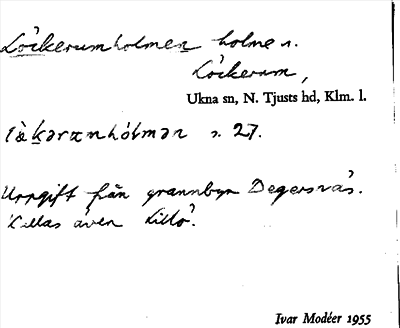 Löckerumholmen holme n.
Löckerum,
Ukna sn, N. Tjusts hd, Klm. l.
s. 27.
Uppgift från grannbyn Degersnäs.
Kallas även Lillö.
Ivar Modéer 1955